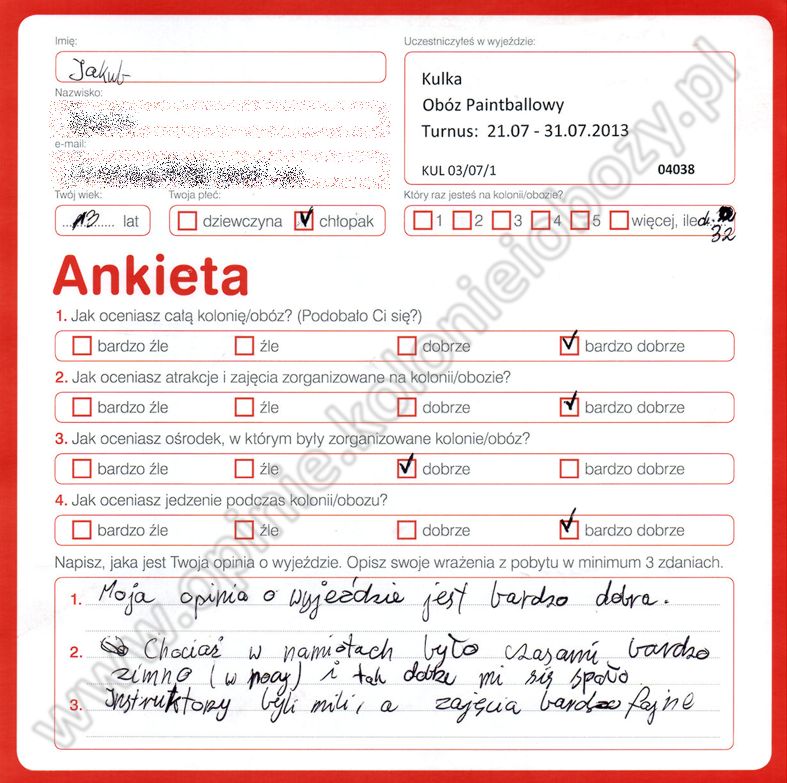 Imię:
Jakub
Uczestniczyłeś w wyjeździe:
Kulka
Obóz Paintballowy
Turnus: 21.07 - 31.07.2013
KUL 03/07/1 04038
Nazwisko:
e-mail:
Twój wiek: Twoja płeć: Który raz jesteś na kolonii/obozie?
13 lat dziewczyna chłopak 1 2 3 4 5 więcej, ile
32
Ankieta
1. Jak oceniasz całą kolonię/obóz? (Podobało Ci się?)
bardzo źle źle dobrze bardzo dobrze
2. Jak oceniasz atrakcje i zajęcia zorganizowane na kolonii/obozie?
bardzo źle źle dobrze bardzo dobrze
3. Jak oceniasz ośrodek, w którym były zorganizowane kolonie/obóz?
bardzo źle źle dobrze bardzo dobrze
4. Jak oceniasz jedzenie podczas kolonii/obozu?
bardzo źle źle dobrze bardzo dobrze
Napisz, jaka jest Twoja opinia o wyjeździe. Opisz swoje wrażenia z pobytu w minimum 3 zdaniach.
1. Moja opinia o wyjeździe jest bardzo dobra.
2. Chociaż w namiotach było czasami bardzo
zimno (w nocy) i tak dobrze mi się spało.
3. Instruktorzy byli mili, a zajęcia bardzo fajne
www.opinie.kolonieiobozy.pl